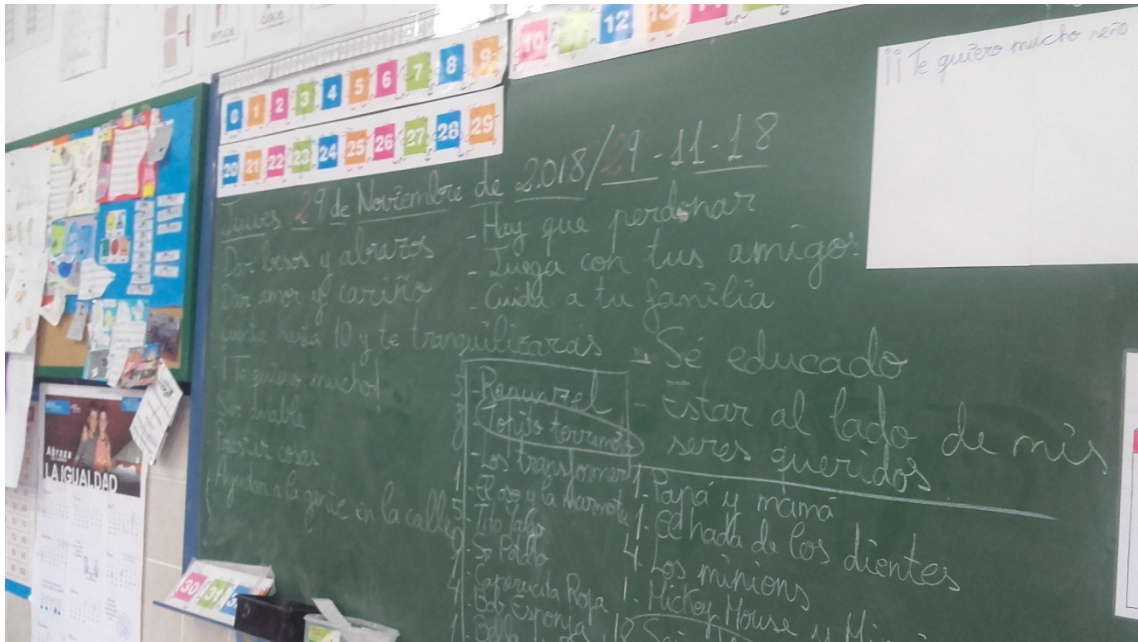 0 1 2 3 4 5 6 7 8 9
10 11 12 13
20 21 22 23 24 25 26 27 28 29
¡¡ Te quiero mucho seño
Jueves 29 de Noviembre de 2.018/29-11-18
Dar besos y abrazos
Dar amor y cariño
Cuenta hasta 10 y te tranquilizarás
¡Te quiero mucho!
Ser amable
Prestar cosas
Ayudar a la gente en la calle
- Hay que perdonar
- Juega con tus amigos
- Cuida a tu familia
- Sé educado
- Estar al lado de mis
seres queridos.
5 - Rapunzel
8 - Toñito torremoto
1 - Los transformers
1 - El oso y la Marmota
5 - Tito Yayo
2 - Sr Pablo
4 - Caperucita Roja
1 - Bob Esponja
1 - Bella
1 - Papá y mamá
1 - El hada de los dientes
4 - Los minions
1 Mickey Mouse y
Abraza
LA IGUALDAD
30 31